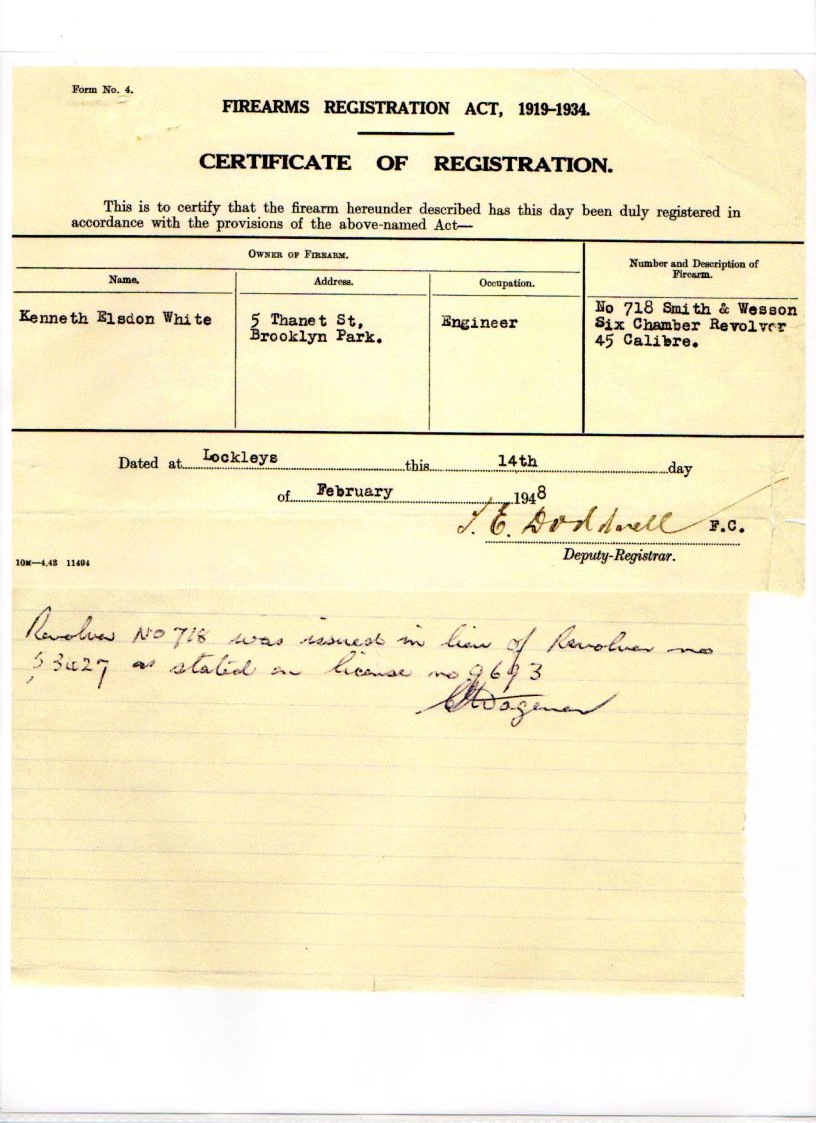 Form No. 4.
FIREARMS REGISTRATION ACT, 1919–1934.
CERTIFICATE OF REGISTRATION.
This is to certify that the firearm hereunder described has this day been duly registered in
accordance with the provisions of the above-named Act—
OWNER OF FIREARM.
Number and Description of
Firearm.
Name.
Address.
Occupation.
Kenneth Elsdon White
5 Thanet St,
Brooklyn Park.
Engineer
No 718 Smith & Wesson
Six Chamber Revolver
45 Calibre.
Dated at Lockleys this 14th day
of February 1948
F.C.
Deputy-Registrar.
10M—4.43 11494
Revolver No 718 was issued in lieu of Revolver no
as stated on license no 9693